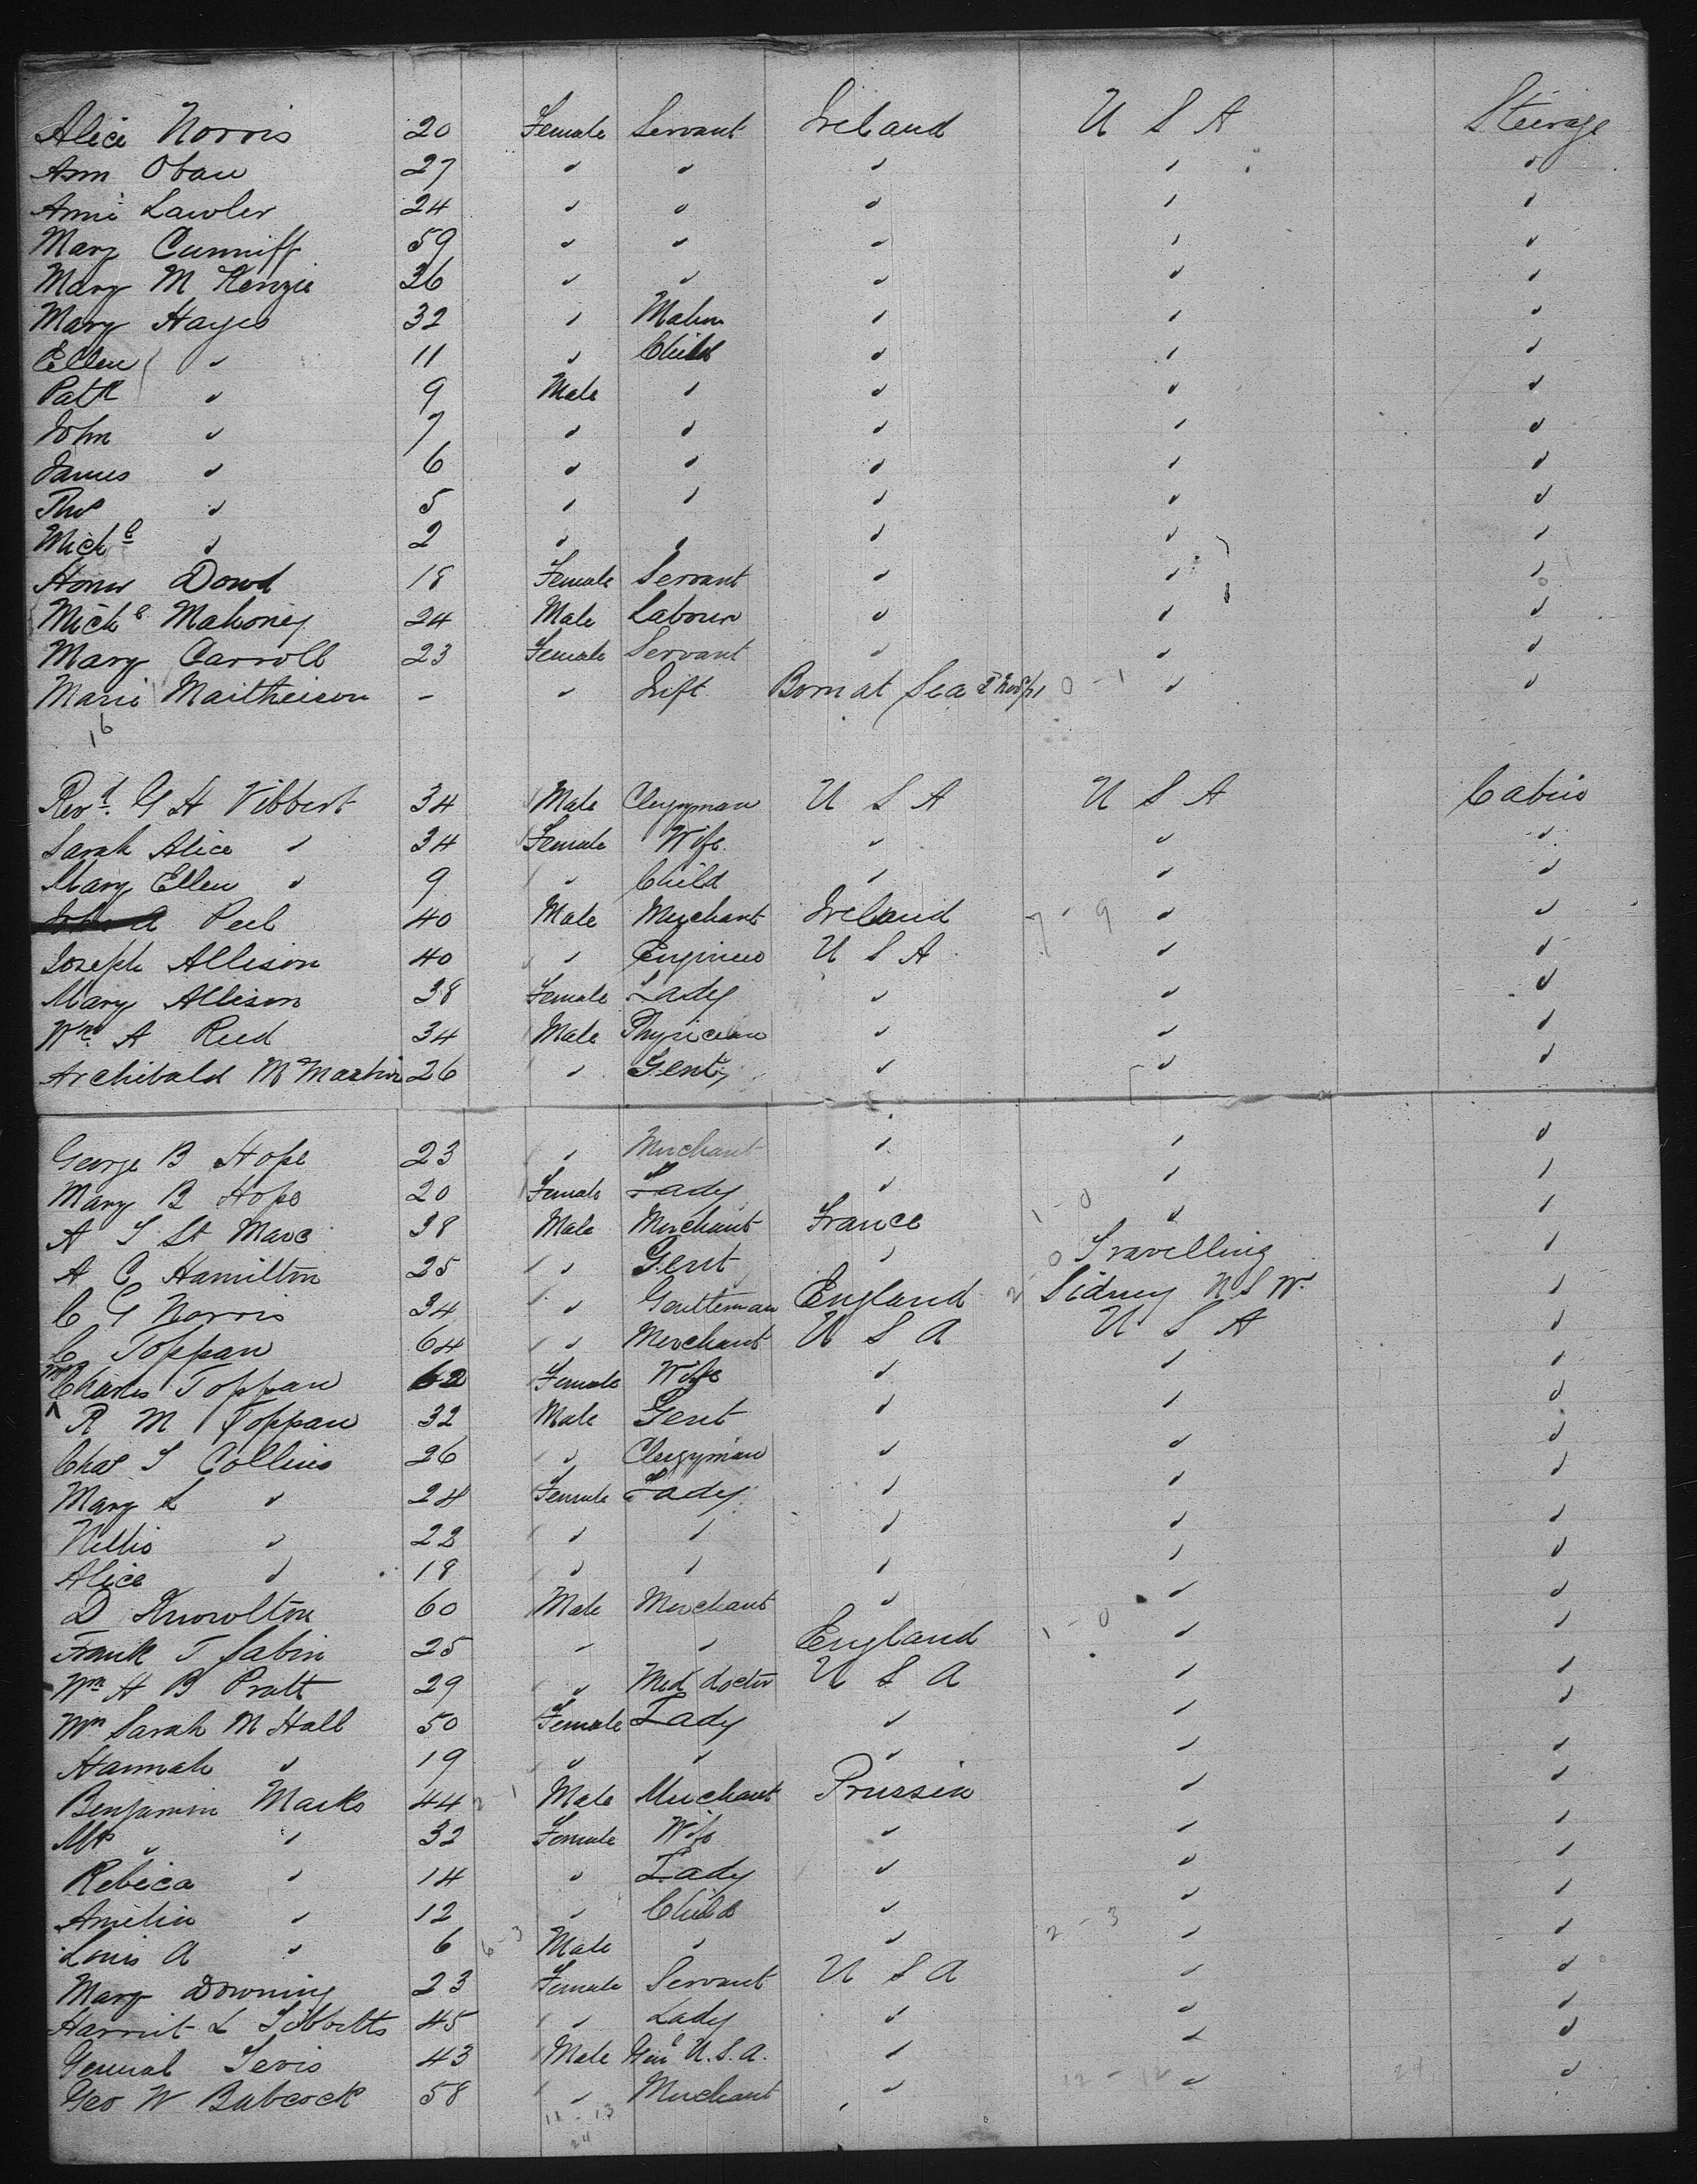 Alice Norris 20 Female Servant Ireland U S A Steerage
Ann Oban 27 " " " " "
Anni Lawler 24 " " " " "
Mary Cunniff 59 " " " " "
Mary Mc Kenzie 36 " " " " "
Mary Hayes 32 " Matron " " "
Ellen " 11 " Child " " "
Patk " 9 Male " " " "
John " 7 " " " " "
James " 6 " " " " "
Thos " 5 " " " " "
Michl " 2 " " " " "
Honor Dowd 18 Female Servant " " "
Michl Mahoney 24 Male Labourer " " "
Mary Carroll 23 Female Servant " " "
Marie Maitheison - " Inft Born at Sea 0 - 1 " "
16
Revd. G H Vibbert 34 Male Clergyman U S A U S A Cabin
Sarah Alice " 34 Female Wife " " "
Mary Ellen " 9 " Child " " "
Peel 40 Male Merchant Ireland 7 - 9 " "
Joseph Allison 40 " Engineer U S A " "
Mary Allison 38 Female Lady " " "
Wm A Reed 34 Male Physician " " "
Archibald Mc Martin 26 " Gent " " "
George B Hope 23 " Merchant " " "
Mary B Hope 20 Female Lady " " "
A S St Marc 38 Male Merchant France 1 - 0 " "
A C Hamilton 25 " Gent " 0 Travelling "
C G Norris 34 " Gentleman England 2 Sidney N S W. "
C Toppan 64 " Merchant U S A U S A "
Mrs Charles Toppan 62 Female Wife " " "
R M Toppan 32 Male Gent " " "
Chas S Collins 26 " Clergyman " " "
Mary L " 24 Female Lady " " "
Nellie " 22 " " " " "
Alice " 18 " " " " "
D Knowlton 60 Male Merchant " " "
Frank T Sabin 25 " " England 1 - 0 " "
Wm H B Pratt 29 " Med doctor U S A " "
Mrs Sarah M Hall 50 Female Lady " " "
Hannah " 19 " " " " "
Benjamin Marks 44 2 - 1 Male Merchant Prussia " "
Mrs " " 32 Female Wife " " "
Rebeca " 14 " Lady " " "
Amelia " 12 " Child " " "
Louis A " 6 6 - 3 Male " " 2 - 3 " "
Mary Downing 23 Female Servant U S A " "
Harriet L Tibbetts 45 " Lady " " "
General Tevis 43 Male Genl U.S.A. " " "
Geo W Babcock 58 " Merchant " 12 - 12 " 24 "
11 - 13
24